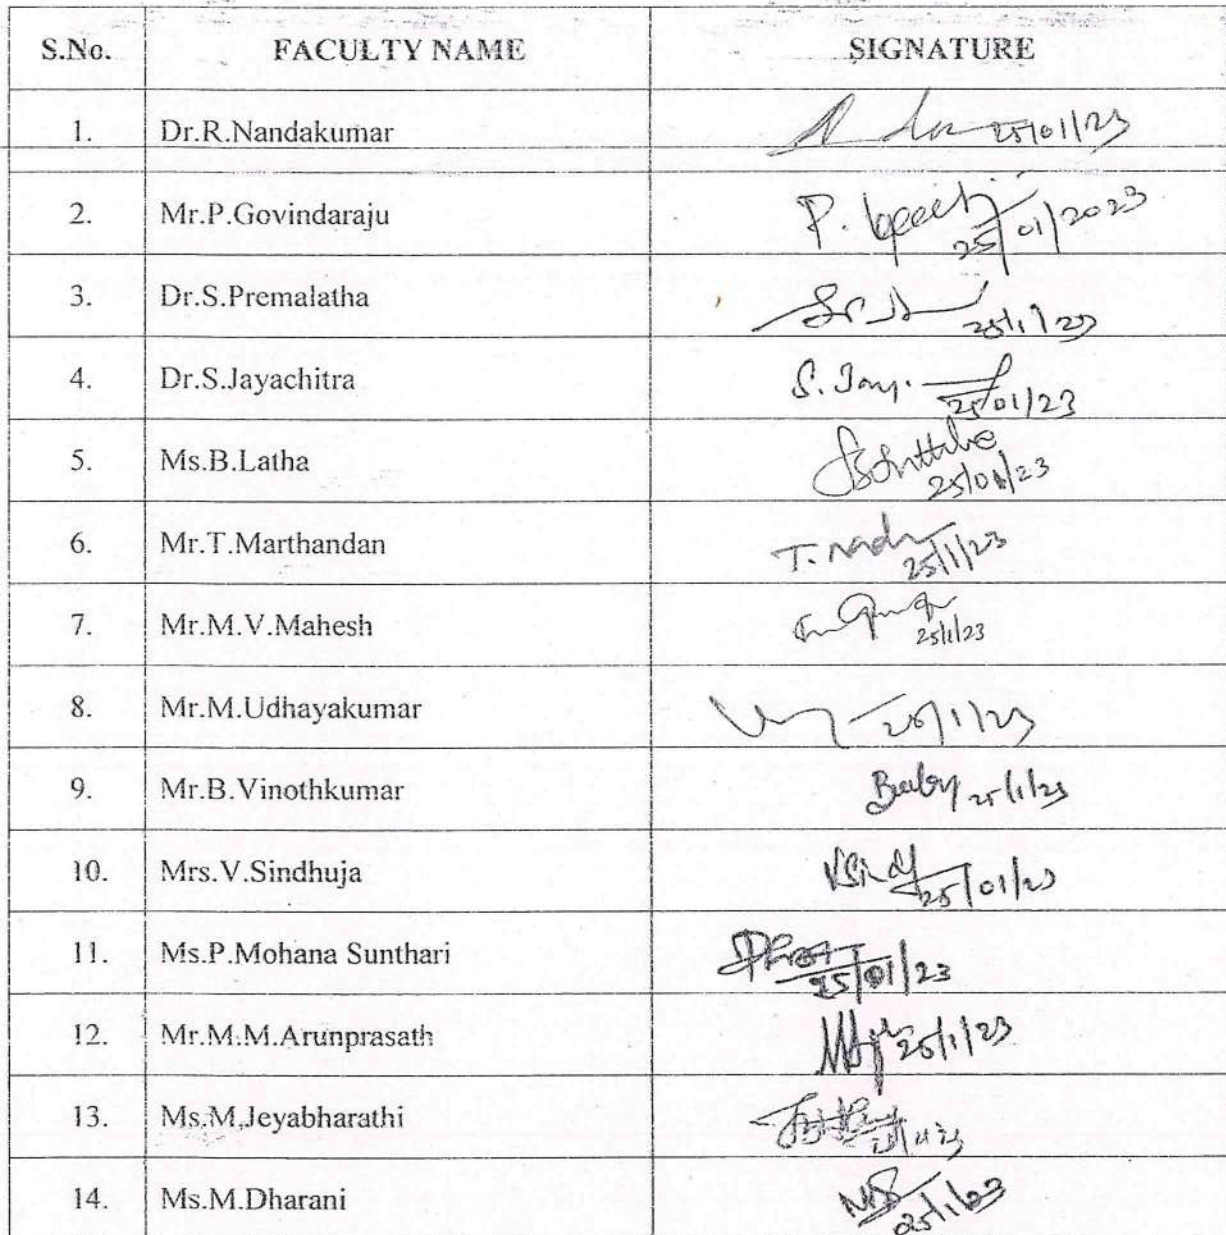 S.No. FACULTY NAME SIGNATURE
1. Dr.R.Nandakumar 25/01/23
2. Mr.P.Govindaraju P. 25/01/2023
3. Dr.S.Premalatha 25/1/23
4. Dr.S.Jayachitra S. Jay. 25/01/23
5. Ms.B.Latha 25/01/23
6. Mr.T.Marthandan T. 25/1/23
7. Mr.M.V.Mahesh 25/1/23
8. Mr.M.Udhayakumar 25/1/23
9. Mr.B.Vinothkumar 25/1/23
10. Mrs.V.Sindhuja 25/01/23
11. Ms.P.Mohana Sunthari 25/01/23
12. Mr.M.M.Arunprasath 25/1/23
13. Ms.M.Jeyabharathi
14. Ms.M.Dharani 25/1/23